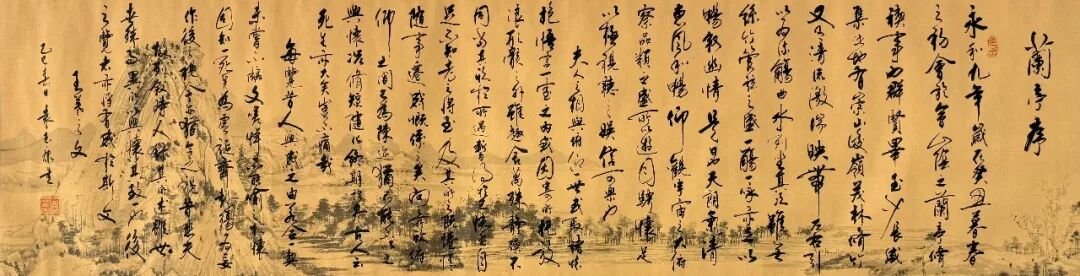 蘭亭序
永和九年歲在癸丑暮春
之初會於會稽山陰之蘭亭脩
禊事也群賢畢至少長咸
集此地有崇山峻嶺茂林脩竹
又有清流激湍映帶左右引
以為流觴曲水列坐其次雖無
絲竹管弦之盛一觴一詠亦足以
暢敘幽情是日也天朗氣清
惠風和暢仰觀宇宙之大俯
察品類之盛所以遊目騁懷足
以極視聽之娛信可樂也
夫人之相與俯仰一世或取諸懷
抱悟言一室之內或因寄所託放
浪形骸之外雖趣舍萬殊靜躁不
同當其欣於所遇暫得於己快然自
足不知老之將至及其所之既倦情
隨事遷感慨係之矣向之所欣俯
仰之間已為陳迹猶不能不以之
興懷況脩短隨化終期於盡古人云
死生亦大矣豈不痛哉
每覽昔人興感之由若合一契
未嘗不臨文嗟悼不能喻之於懷
固知一死生為虛誕齊彭殤為妄
作後之視今亦猶今之視昔悲夫
故列敘時人錄其所述雖世
殊事異所以興懷其致一也後
之覽者亦將有感於斯文
王羲之文